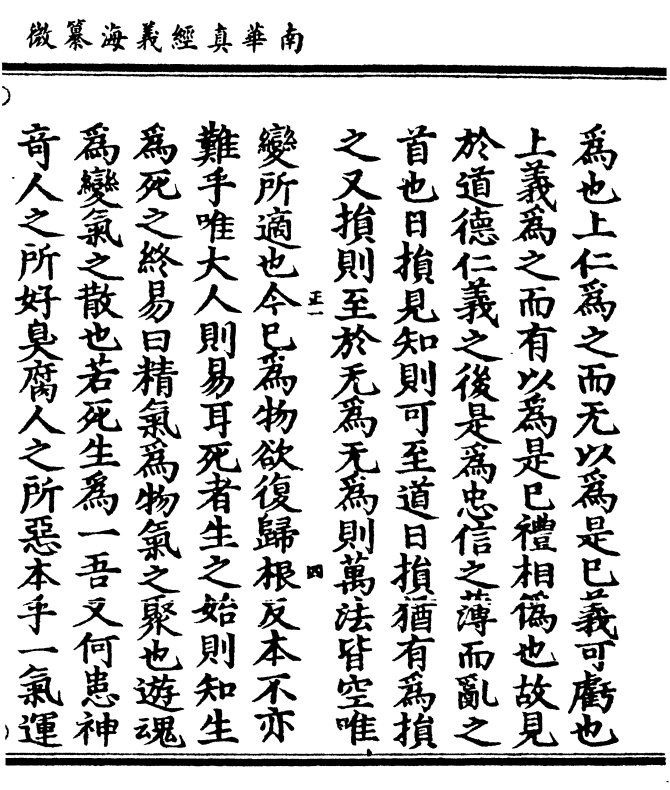 南華真經義海纂微
為也上仁為之而无以為是已義可虧也
上義為之而有以為是已禮相僞也故見
於道德仁義之後是為忠信之薄而亂之
首也日損見知則可至道日損猶有為損
之又損則至於无為无為則萬法皆空唯
正一
四
變所適也今已為物欲復歸根反本不亦
難乎唯大人則易耳死者生之始則知生
為死之終易曰精氣為物氣之聚也遊魂
為變氣之散也若死生為一吾又何患神
竒人之所好臭腐人之所惡本乎一氣運